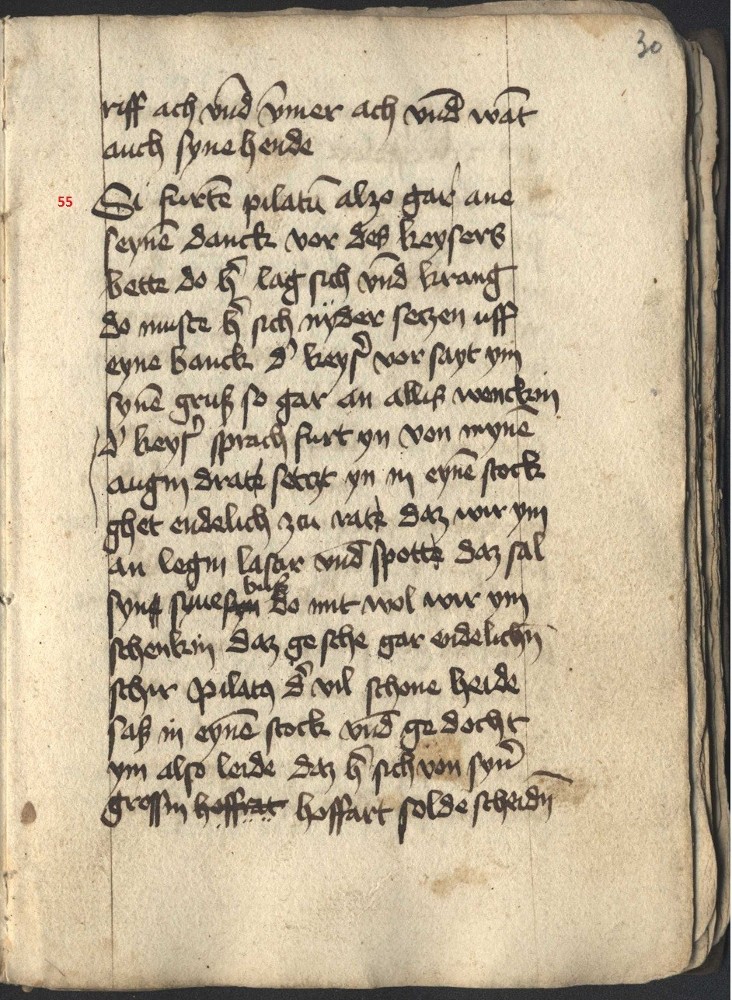 30
riff ach vn̄d v̄mer ach vn̄d wāt
auch syne hende
55
Si furtē pilatū alzo gar ane
seynē danck vor des keysers
bette do h̄ lag sich vn̄d krang
do muste h̄ sich nÿder seczen uff
eyne banck d' keys' vor sayt ym
synē gruß so gar an alliß wenckin
d' keys' sprach furt yn von mynē
augin drate seczt yn in eynē stock
ghet endelich zcu rate daz wir ym
an legin laster vnd spotte daz sal
syn syne buß do mit wol wir ym
schenkin daz ge sche gar endelichn̄
schir pilatꝰ d' vil schone heide
saß in eynē stock vn̄d ge docht
ym also leide daz h̄ sich von syn'
grossin hoffrat hoffart solde scheidn̄